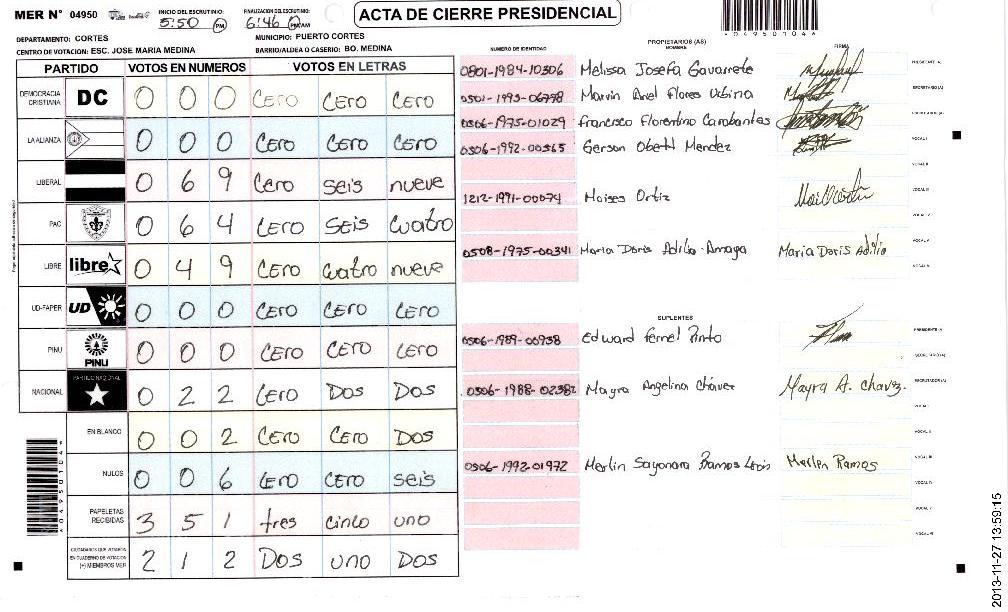 MER N° 04950
INICIO DEL ESCRUTINIO: 5:50 PM
FINALIZACION DEL ESCRUTINIO: 6:46 PM/AM
ACTA DE CIERRE PRESIDENCIAL
*04950104*
DEPARTAMENTO: CORTES
MUNICIPIO: PUERTO CORTES
CENTRO DE VOTACION: ESC. JOSE MARIA MEDINA
BARRIO/ALDEA O CASERIO: BO. MEDINA
PARTIDO VOTOS EN NUMEROS VOTOS EN LETRAS
DEMOCRACIA CRISTIANA DC 0 0 0 CERO CERO CERO
LA ALIANZA 0 0 0 CERO CERO CERO
LIBERAL 0 6 9 CERO SEIS nueve
PAC 0 6 4 CERO SEIS CUATRO
LIBRE libre 0 4 9 CERO CUATRO nueve
UD-FAPER UD 0 0 0 CERO CERO CERO
PINU PINU 0 0 0 CERO CERO CERO
NACIONAL PARTIDO NACIONAL 0 2 2 CERO DOS DOS
EN BLANCO 0 0 2 CERO CERO DOS
NULOS 0 0 6 CERO CERO SEIS
PAPELETAS RECIBIDAS 3 5 1 tres cinco uno
CIUDADANOS QUE VOTARON EN CUADERNO DE VOTACION (+) MIEMBROS MER 2 1 2 DOS uno DOS
PROPIETARIOS (AS)
NUMERO DE IDENTIDAD NOMBRE FIRMA
0801-1984-10306 Melissa Josefa Gavarrete PRESIDENTE (A)
0501-1993-06798 Marvin Ariel Flores Urbina SECRETARIO (A)
0506-1975-01029 Francisco Florentino Carabantes ESCRUTADOR (A)
0506-1992-00365 Gerson Obeth Mendez VOCAL I
VOCAL II
1212-1991-00074 Moises Ortiz VOCAL III
VOCAL IV
0508-1975-00341 Maria Doris Adilio Amaya Maria Doris Adilio VOCAL V
VOCAL VI
SUPLENTES
0506-1989-00938 Edward Fernel Pinto PRESIDENTE (A)
SECRETARIO (A)
0506-1988-02382 Mayra Angelina Chávez Mayra A. Chavez. ESCRUTADOR (A)
VOCAL I
VOCAL II
0506-1992-01972 Merlin Sayonara Ramos León Merlen Ramos VOCAL III
VOCAL IV
VOCAL V
VOCAL VI
*04950104*
2013-11-27 13:59:15